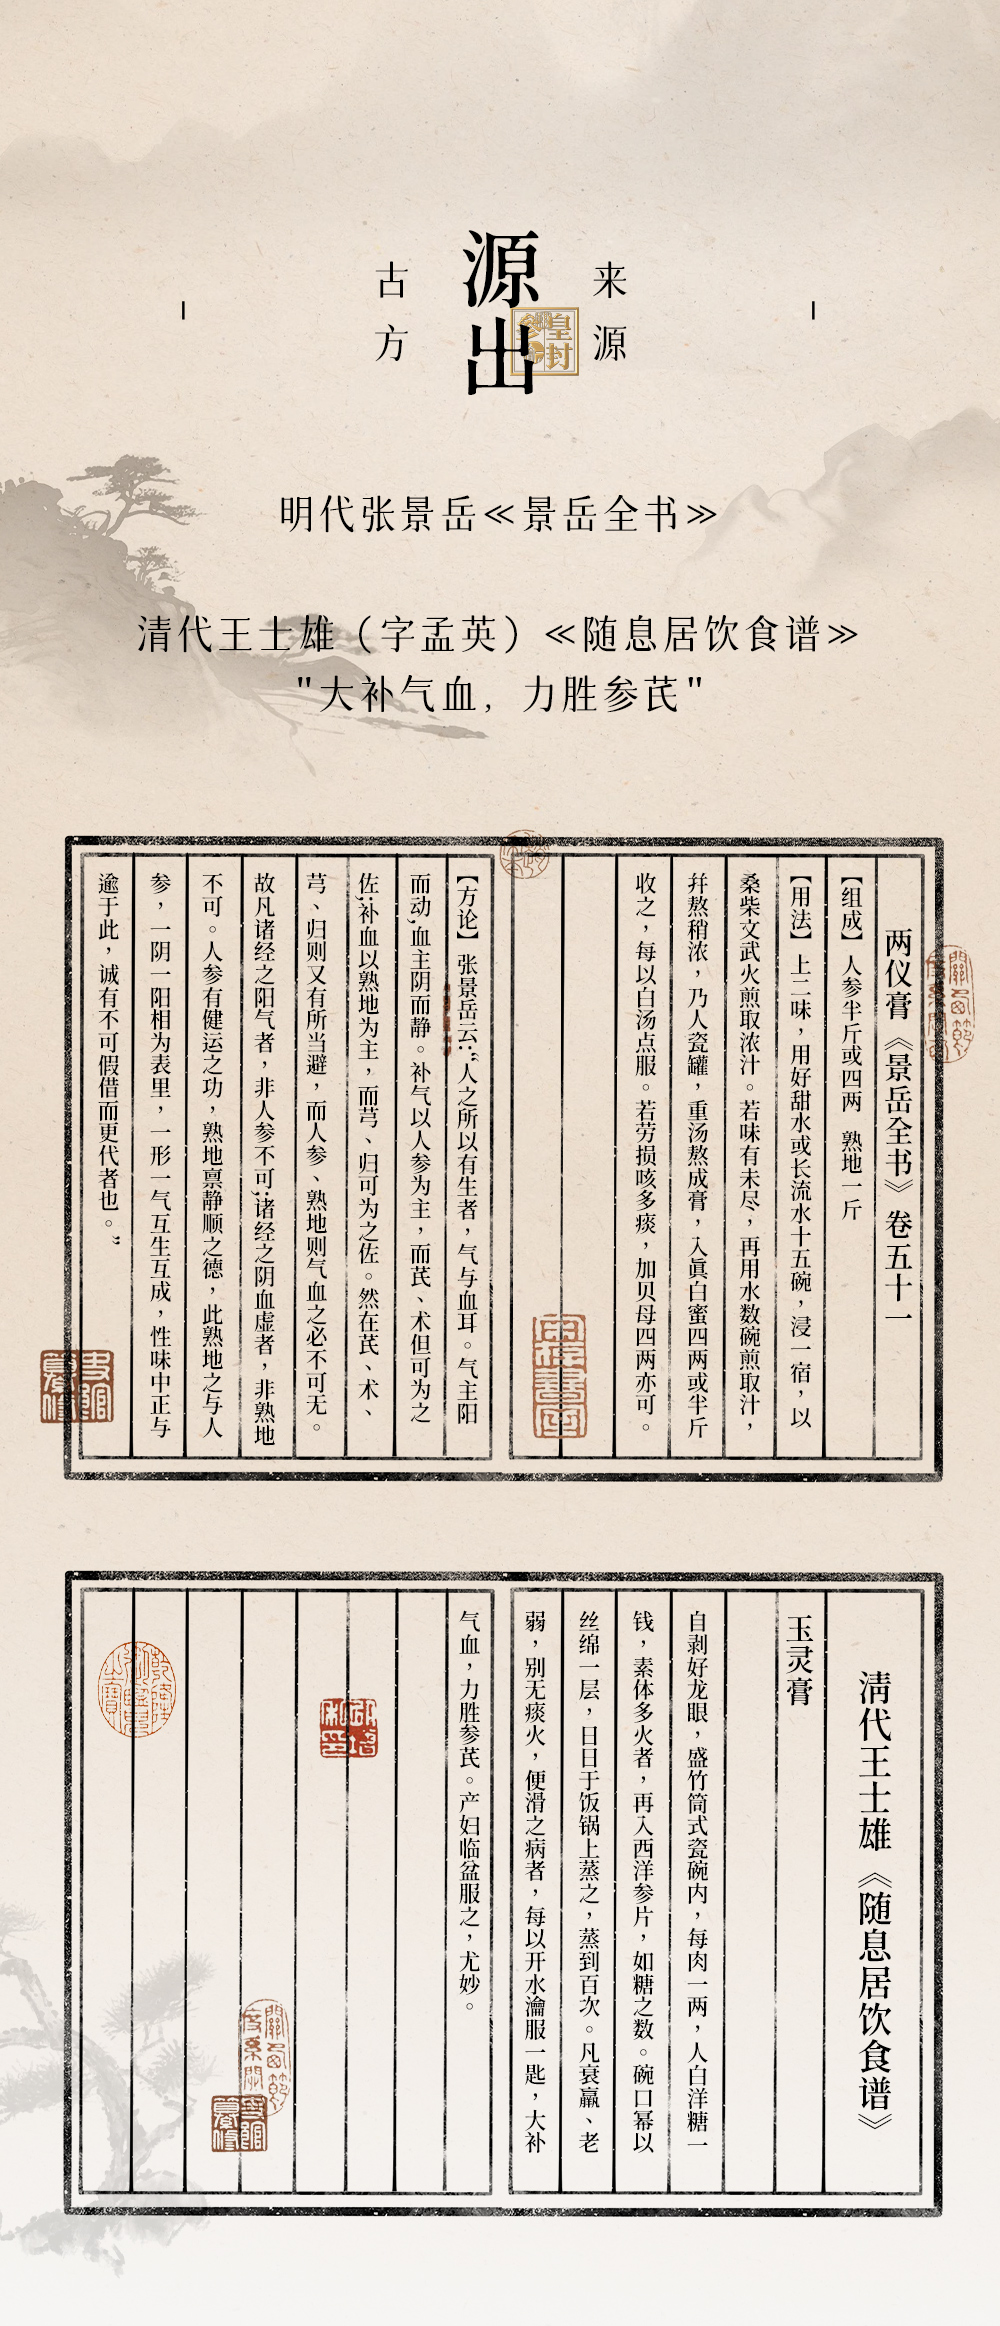 源出
古方
来源
皇封参
明代张景岳≪景岳全书≫
清代王士雄（字孟英）≪随息居饮食谱≫
"大补气血，力胜参芪"
两仪膏《景岳全书》卷五十一
【组成】人参半斤或四两 熟地一斤
【用法】上二味，用好甜水或长流水十五碗，浸一宿，以
桑柴文武火煎取浓汁。若味有未尽，再用水数碗煎取汁，
并熬稍浓，乃人瓷罐，重汤熬成膏，入真白蜜四两或半斤
收之，每以白汤点服。若劳损咳多痰，加贝母四两亦可。
【方论】张景岳云：“人之所以有生者，气与血耳。气主阳
而动，血主阴而静。补气以人参为主，而芪、术但可为之
佐；补血以熟地为主，而芎、归可为之佐。然在芪、术、
芎、归则又有所当避，而人参、熟地则气血之必不可无。
故凡诸经之阳气者，非人参不可；诸经之阴血虚者，非熟地
不可。人参有健运之功，熟地禀静顺之德，此熟地之与人
参，一阴一阳相为表里，一形一气互生互成，性味中正与
逾于此，诚有不可假借而更代者也。”
清代王士雄《随息居饮食谱》
玉灵膏
自剥好龙眼，盛竹筒式瓷碗内，每肉一两，人白洋糖一
钱，素体多火者，再入西洋参片，如糖之数。碗口幂以
丝绵一层，日日于饭锅上蒸之，蒸到百次。凡衰羸、老
弱，别无痰火，便滑之病者，每以开水瀹服一匙，大补
气血，力胜参芪。产妇临盆服之，尤妙。